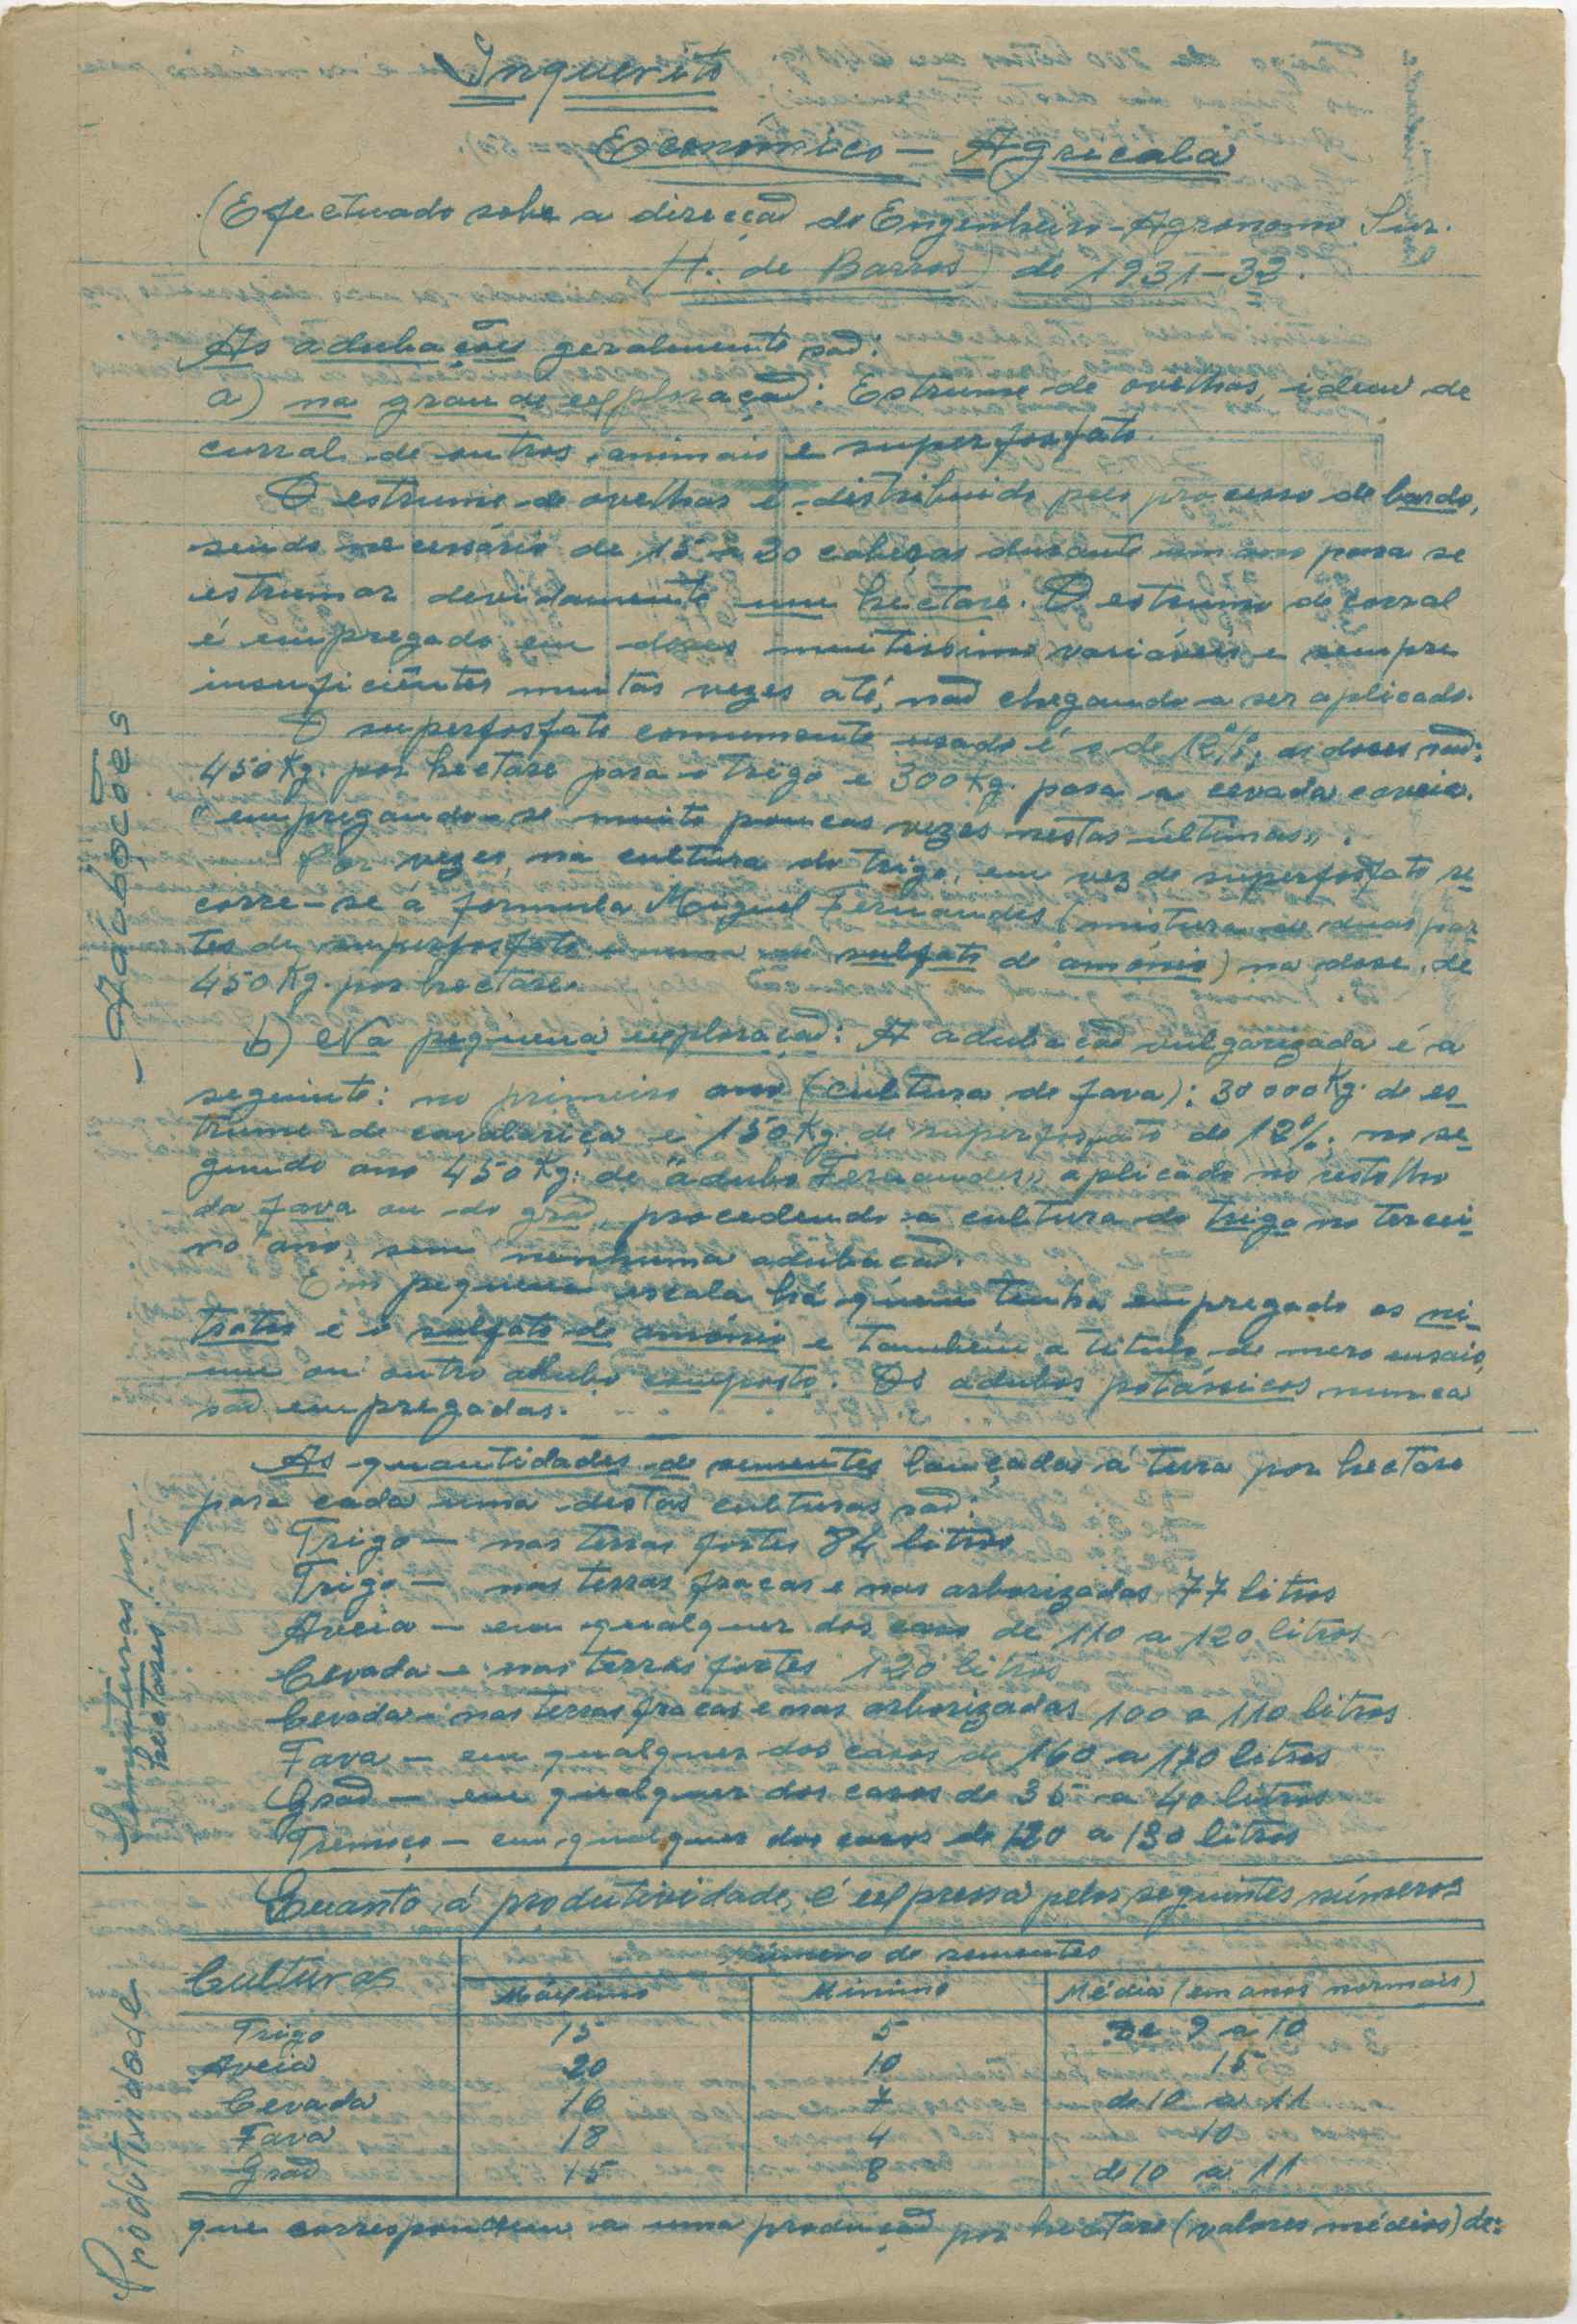 Inquerito
Económico - Agrícola
(Efectuado sobre a direcção do Engenheiro-Agronomo Snr.
H. de Barros) de 1931-32.
As adubações geralmente são:
a) na grande exploração: Estrume de ovelhas, idem de
curral de outros animais e superfosfato.
O estrume de ovelhas é distribuido pelo processo de bardo,
sendo necessário de 15 a 20 cabeças durante um ano para se
estrumar devidamente um hectare. O estrume de corral
é empregado em doses muitissimo variáveis e sempre
insuficientes muitas vezes até, não chegando a ser aplicado.
O superfosfato comumente usado é o de 12%; as doses são:
450 Kg. por hectare para o trigo e 300 Kg. para a cevada e aveia.
"empregando-se muito poucas vezes nestas últimas".
Por vezes, na cultura do trigo, em vez de superfosfato re-
corre-se á formula Miguel Fernandes (mistura de duas par-
tes de superfosfato e uma de sulfato de amónio) na dose de
450 Kg. por hectare.
b) Na pequena exploração: A adubação vulgarizada é a
seguinte: no primeiro ano (cultura de fava): 30 000 Kg. de es-
trume de cavalariça e 150 Kg. de superfosfato de 12%; no se-
gundo ano 450 Kg. de "adubo Fernandes" aplicado no restolho
da fava ou do grão, procedendo a cultura do trigo no tercei-
ro ano, sem nenhuma adubação.
Em pequena escala há quem tenha empregado os ni-
tratos e o sulfato de amónio e também a titulo de mero ensaio,
um ou outro adubo composto. Os adubos potássicos nunca
são empregados.
- Adubações
As quantidades de sementes lançadas á terra por hectare
para cada uma destas culturas são:
Trigo - nas terras fortes 84 litros
Trigo - nas terras fracas e nas arborizadas 77 litros
Aveia - em qualquer dos casos de 110 a 120 litros
Cevada - nas terras fortes 120 litros
Cevada - nas terras fracas e nas arborizadas 100 a 110 litros
Fava - em qualquer dos casos de 160 a 170 litros
Grão - em qualquer dos casos de 35 a 40 litros
Tremoço - em qualquer dos casos de 120 a 130 litros
Sementeiras por
hectares
Quanto á produtividade, é expressa pelos seguintes números
Culturas Número de sementes
Máximo Minimo Média (em anos normais)
Trigo 15 5 De 9 a 10
Aveia 20 10 15
Cevada 16 7 de 10 a 11
Fava 18 4 10
Grão 15 8 de 10 a 11
que correspondem a uma produção por hectare (valores médios) de:
Produtividade